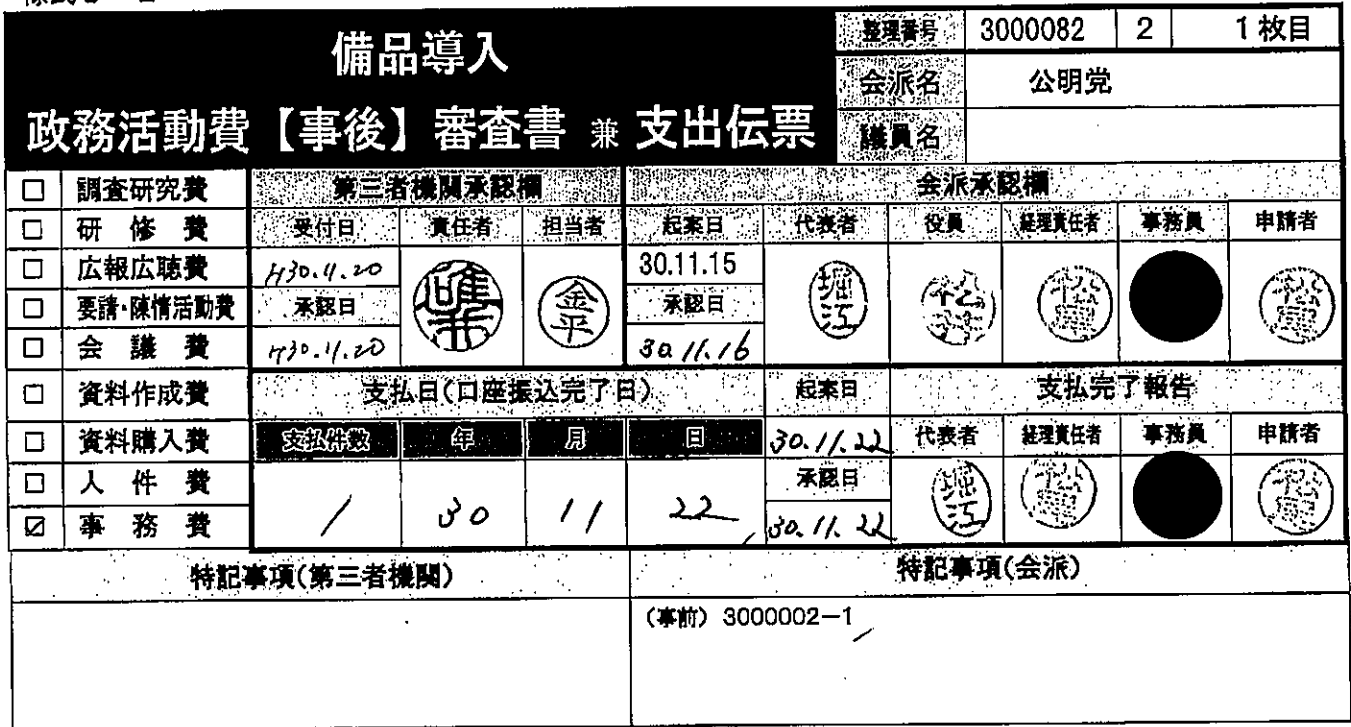 備品導入
政務活動費【事後】審査書 兼 支出伝票
整理番号 3000082 2 1枚目
会派名 公明党
議員名
□ 調査研究費
□ 研修費
□ 広報広聴費
□ 要請・陳情活動費
□ 会議費
□ 資料作成費
□ 資料購入費
□ 人件費
☑ 事務費
第三者機関承認欄
受付日 責任者 担当者
H30.11.20
金平
承認日
H30.11.20
会派承認欄
起案日 代表者 役員 経理責任者 事務員 申請者
30.11.15
堀江
承認日
30.11.16
支払日(口座振込完了日)
支払件数 年 月 日
1 30 11 22
起案日
30.11.22
承認日
30.11.22
支払完了報告
代表者 経理責任者 事務員 申請者
堀江
特記事項(第三者機関)
特記事項(会派)
(事前) 3000002-1